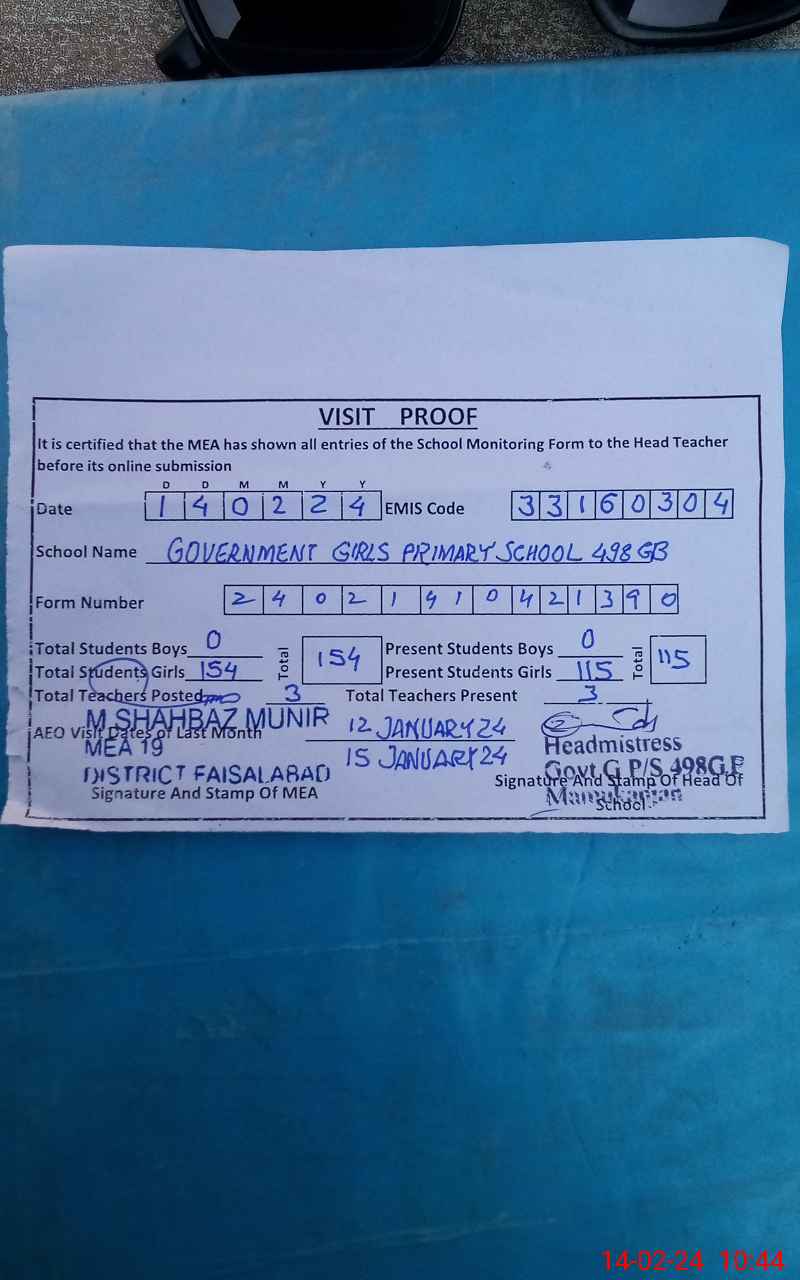 VISIT PROOF
It is certified that the MEA has shown all entries of the School Monitoring Form to the Head Teacher
before its online submission
D D M M Y Y
Date 1 4 0 2 2 4 EMIS Code 3 3 1 6 0 3 0 4
School Name GOVERNMENT GIRLS PRIMARY SCHOOL 498 GB
Form Number 2 4 0 2 1 4 1 0 4 2 1 3 9 0
Total Students Boys 0 Total 154 Present Students Boys 0 Total 115
Total Students Girls 154 Present Students Girls 115
Total Teachers Posted 3 Total Teachers Present 3
M.SHAHBAZ MUNIR
AEO Visit Dates of Last Month 12 JANUARY 24
15 JANUARY 24
MEA 19
DISTRICT FAISALABAD
Signature And Stamp Of MEA
Headmistress
Govt G P/S 498G.B
Signature And Stamp Of Head Of
School
14-02-24 10:44